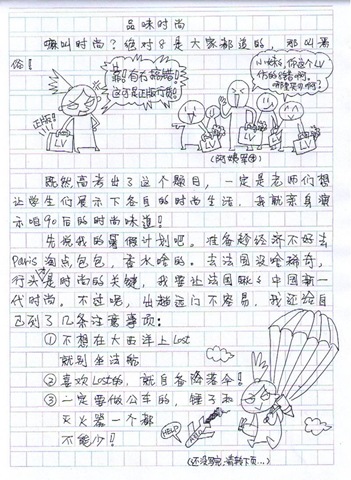 品味时尚
嘛叫时尚？绝对8是大家都追的，那叫暑
俗！
靠！有木搞错！
这可是正版行货！
正版！
LV
小妹，你这个LV
仿的8错啊，
哪里买的啊？
LV
LV
LV
LV
(阿姨军团)
既然高考出了这个题目，一定是老师们想
让学生们展示下各自的时尚生活，我就亲身演
示咱90后的时尚味道！
先说我的暑假计划吧。准备趁经济不好去
Paris 淘点包包，香水啥的。去法国没啥稀奇，
行头是时尚的关键，我要让法国MM's 中国新一
代时尚。不过呢，出趟远门不容易，我还给自
己列了几条注意事项：
① 不想在大西洋上Lost
就别坐法航
② 喜欢Lost的，就自备降落伞！
③ 一定要做公车的，锤子和
灭火器一个都
不能少！
HELP
(还没写完，请转下页…)